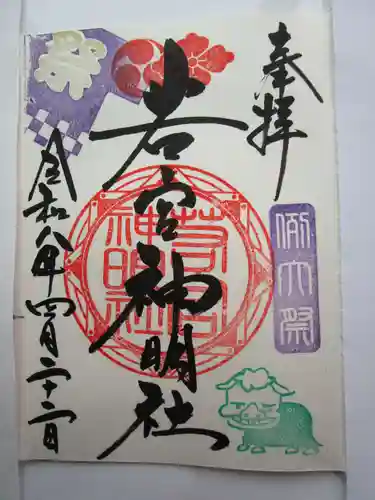 奉拝
例大祭
若宮神明社
若宮
神明社
祭
令和八年四月二十二日